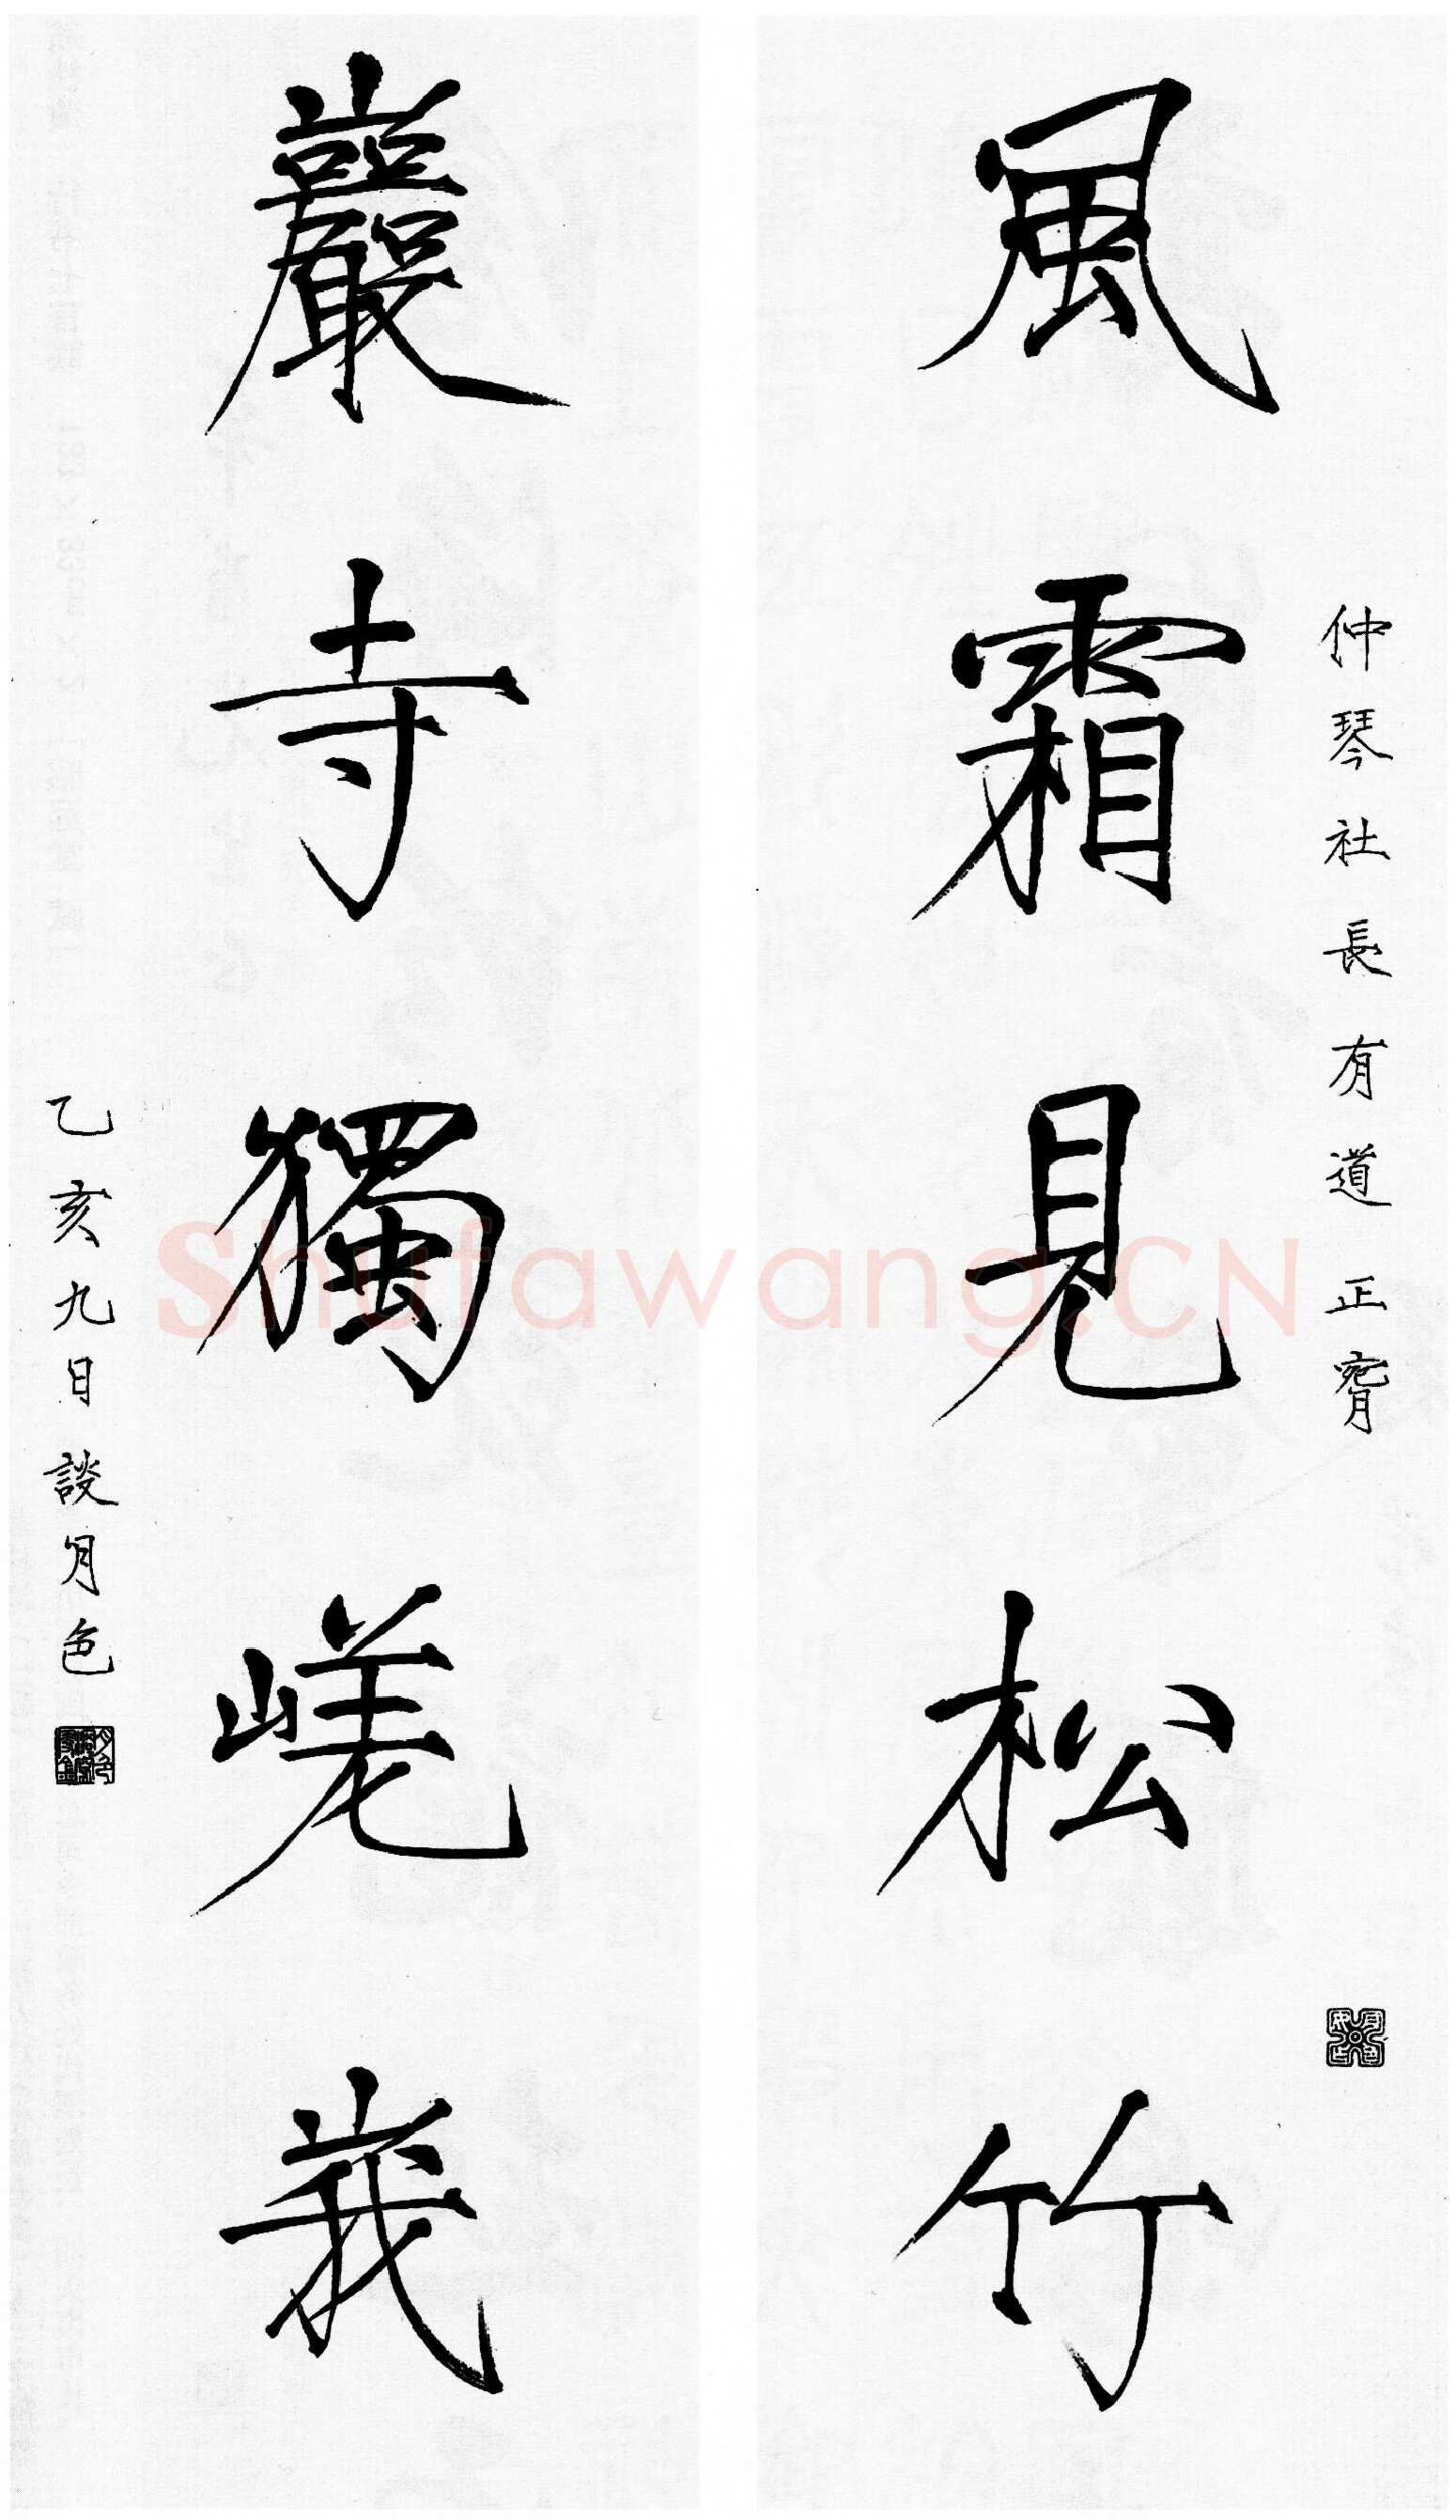 仲琴社長有道正𦙍
風霜見松竹
巖寺獨嵯峨
乙亥九日談月色
Shufawang.CN